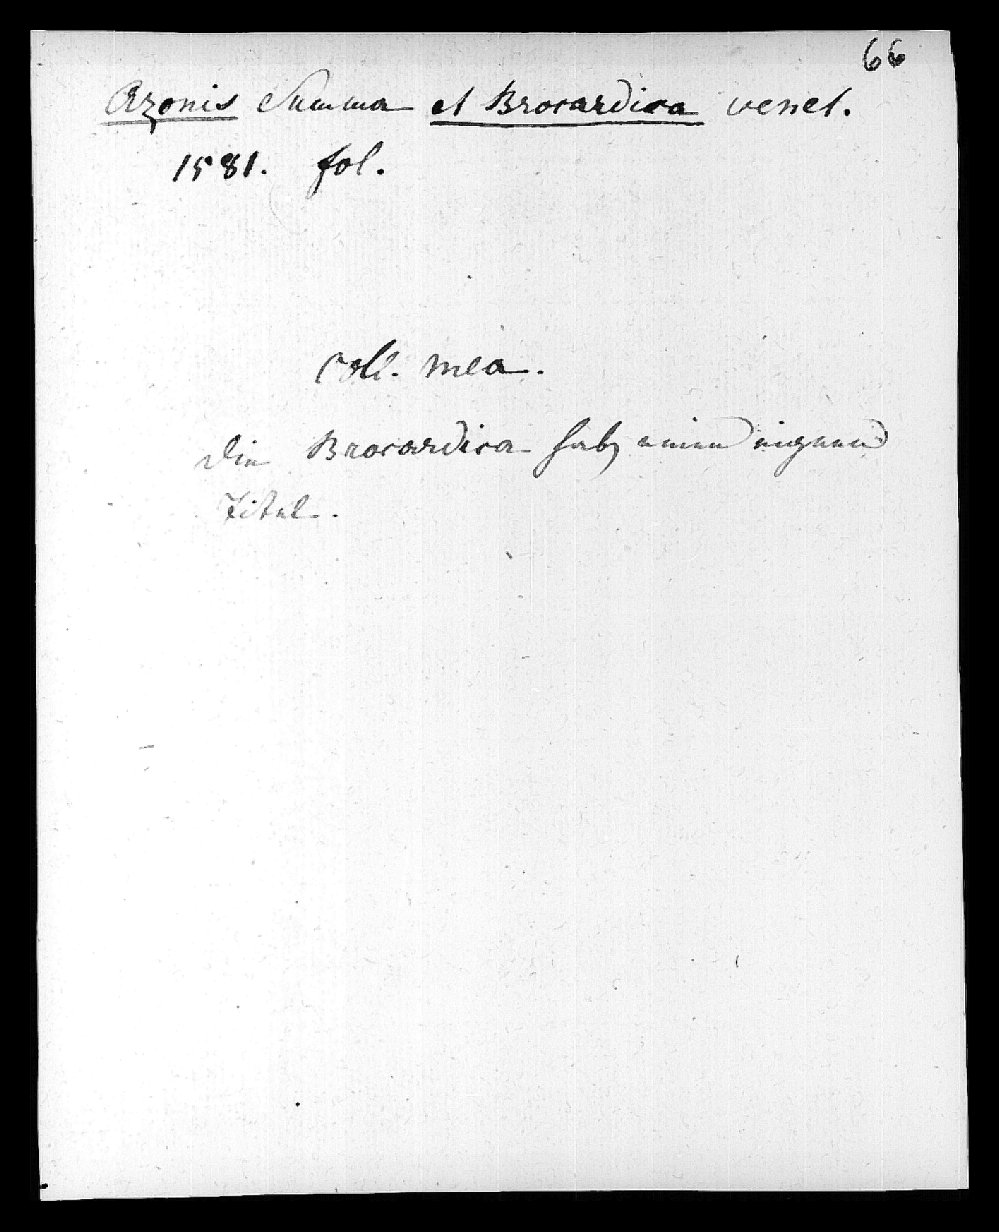 66
Azonis Summa et Brocardica venet.
1581. fol.
Coll. mea.
Die Brocardica hab einen eigenen
Titel.